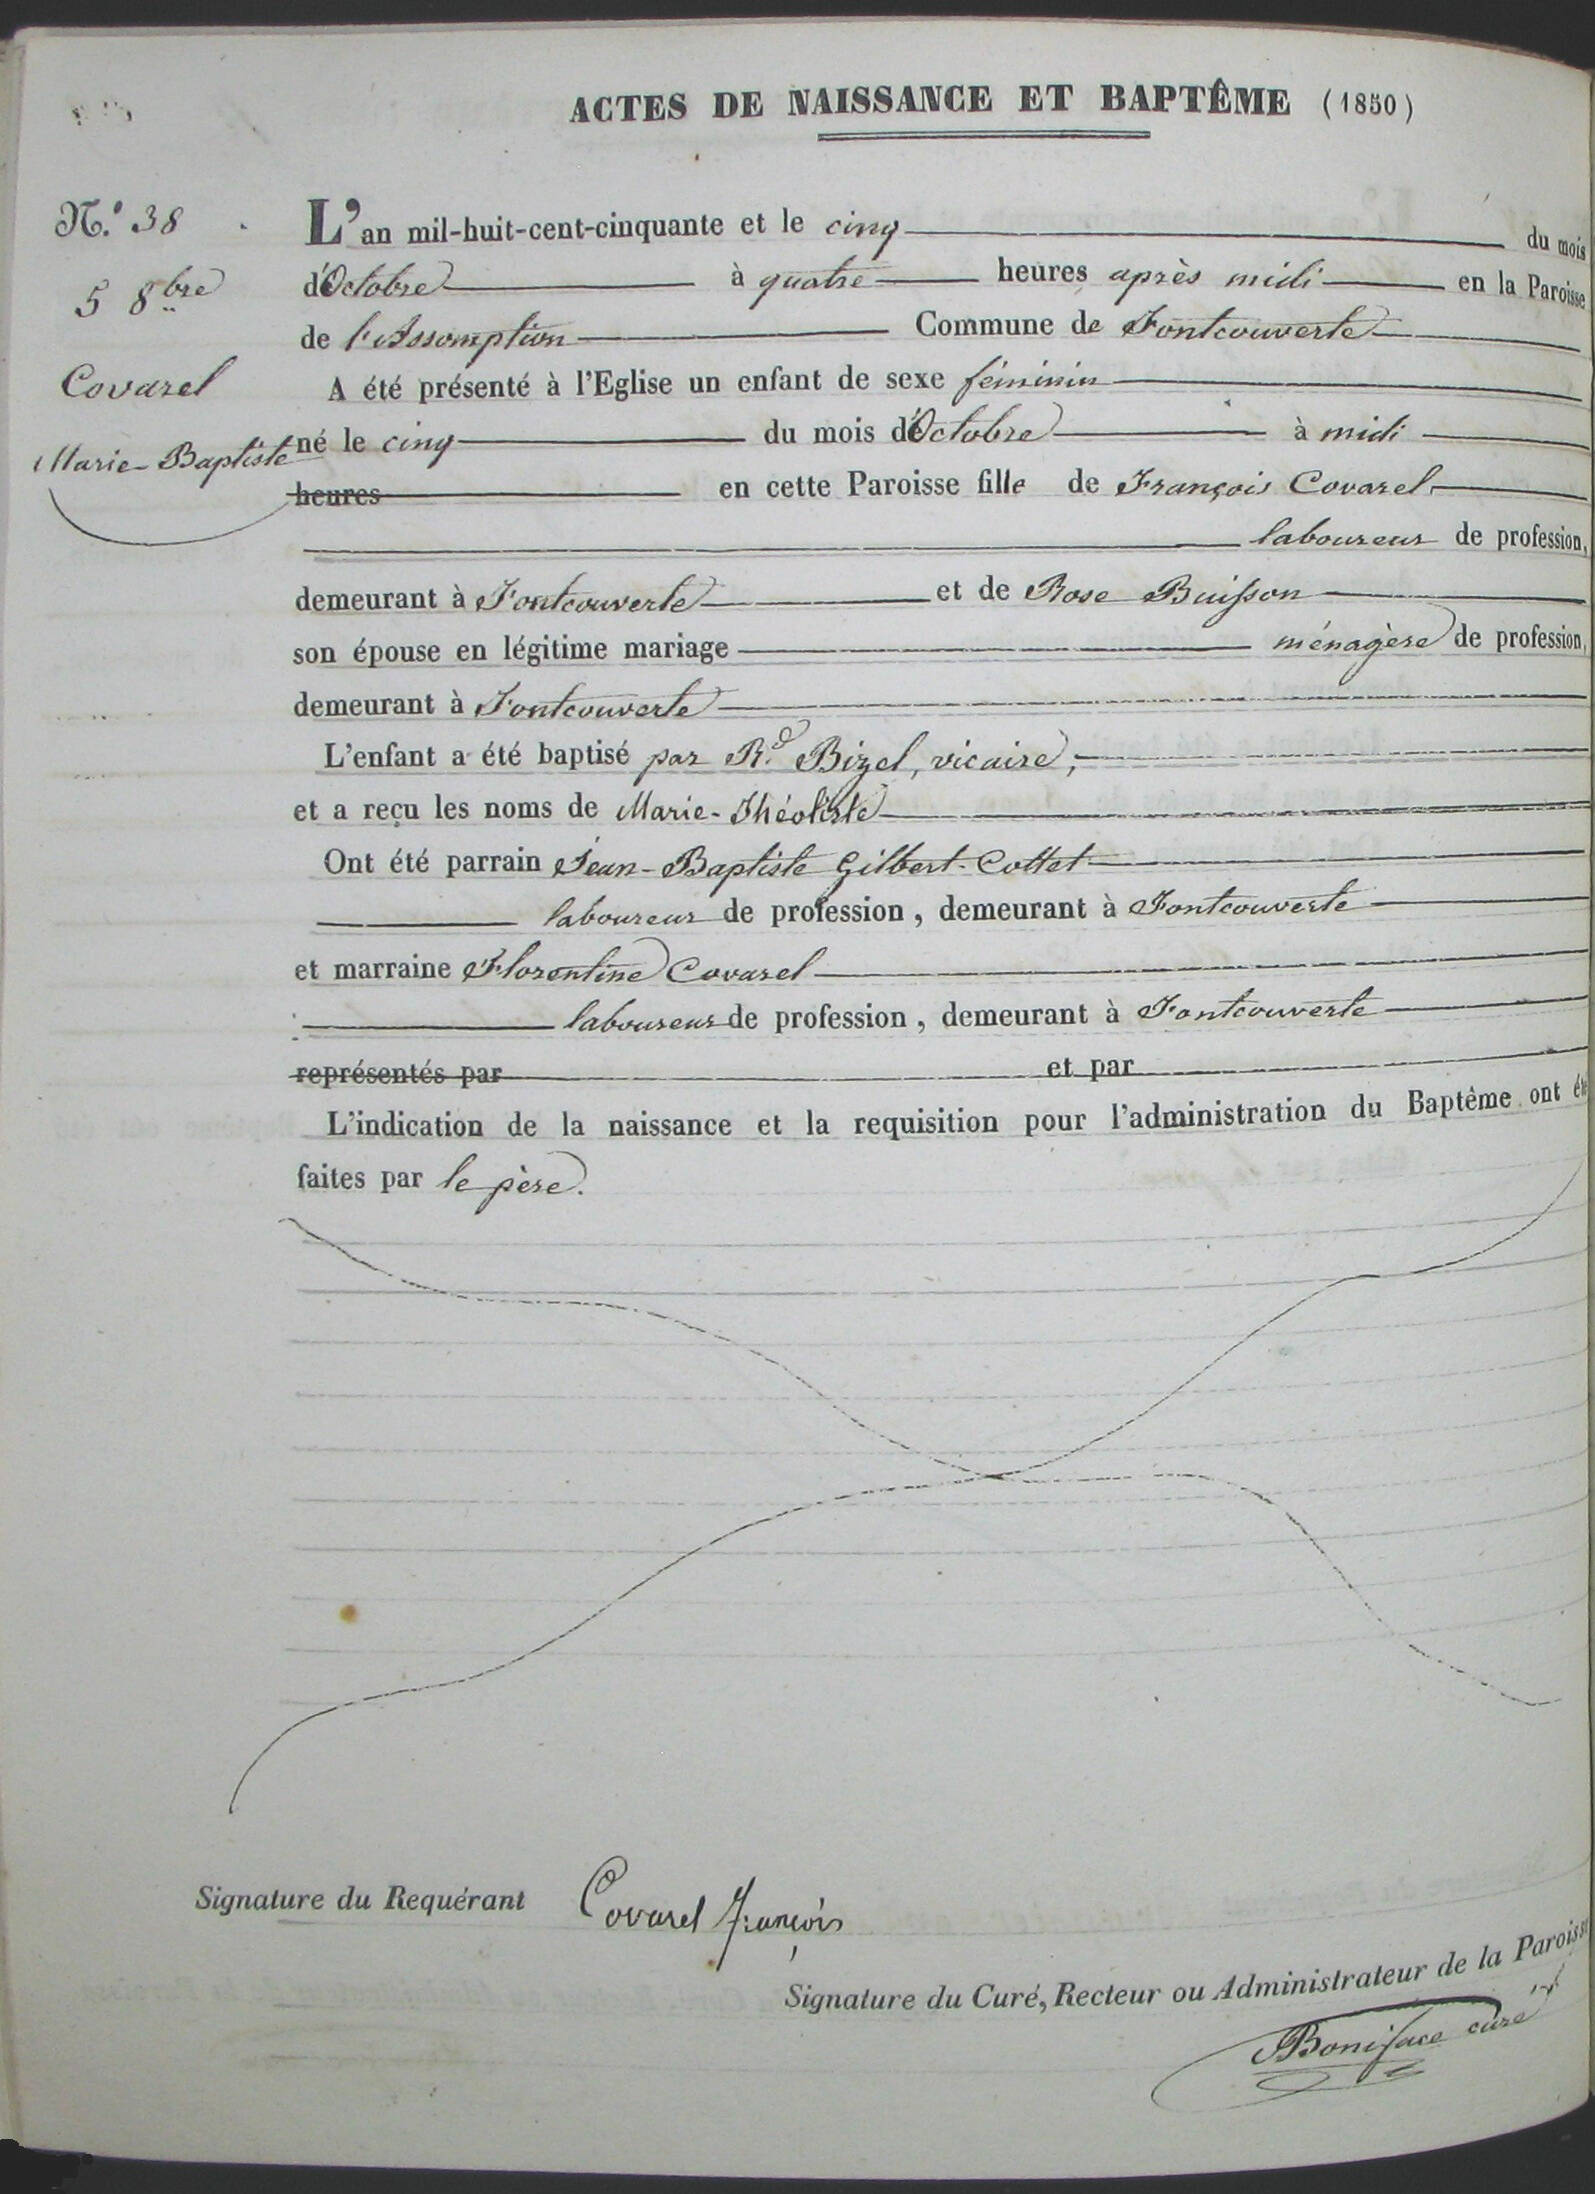 ACTES DE NAISSANCE ET BAPTÊME (1850)
N.º 38
5 8bre
Covarel
Marie-Baptiste
L'an mil-huit-cent-cinquante et le cinq du mois
d'Octobre à quatre heures après midi en la Paroisse
de l'Assomption Commune de Fontcouverte
A été présenté à l'Eglise un enfant de sexe féminin
né le cinq du mois d'Octobre à midi
heures en cette Paroisse fille de François Covarel
laboureur de profession,
demeurant à Fontcouverte et de Rose Buisson
son épouse en légitime mariage ménagère de profession,
demeurant à Fontcouverte
L'enfant a été baptisé par Rd. Bizel, vicaire,
et a reçu les noms de Marie-Théoliste
Ont été parrain Jean-Baptiste Gilbert-Collet
laboureur de profession, demeurant à Fontcouverte
et marraine Florentine Covarel
laboureur de profession, demeurant à Fontcouverte
représentés par et par
L'indication de la naissance et la requisition pour l'administration du Baptême ont été
faites par le père.
Signature du Requérant Covarel François
Signature du Curé, Recteur ou Administrateur de la Paroisse
Boniface curé